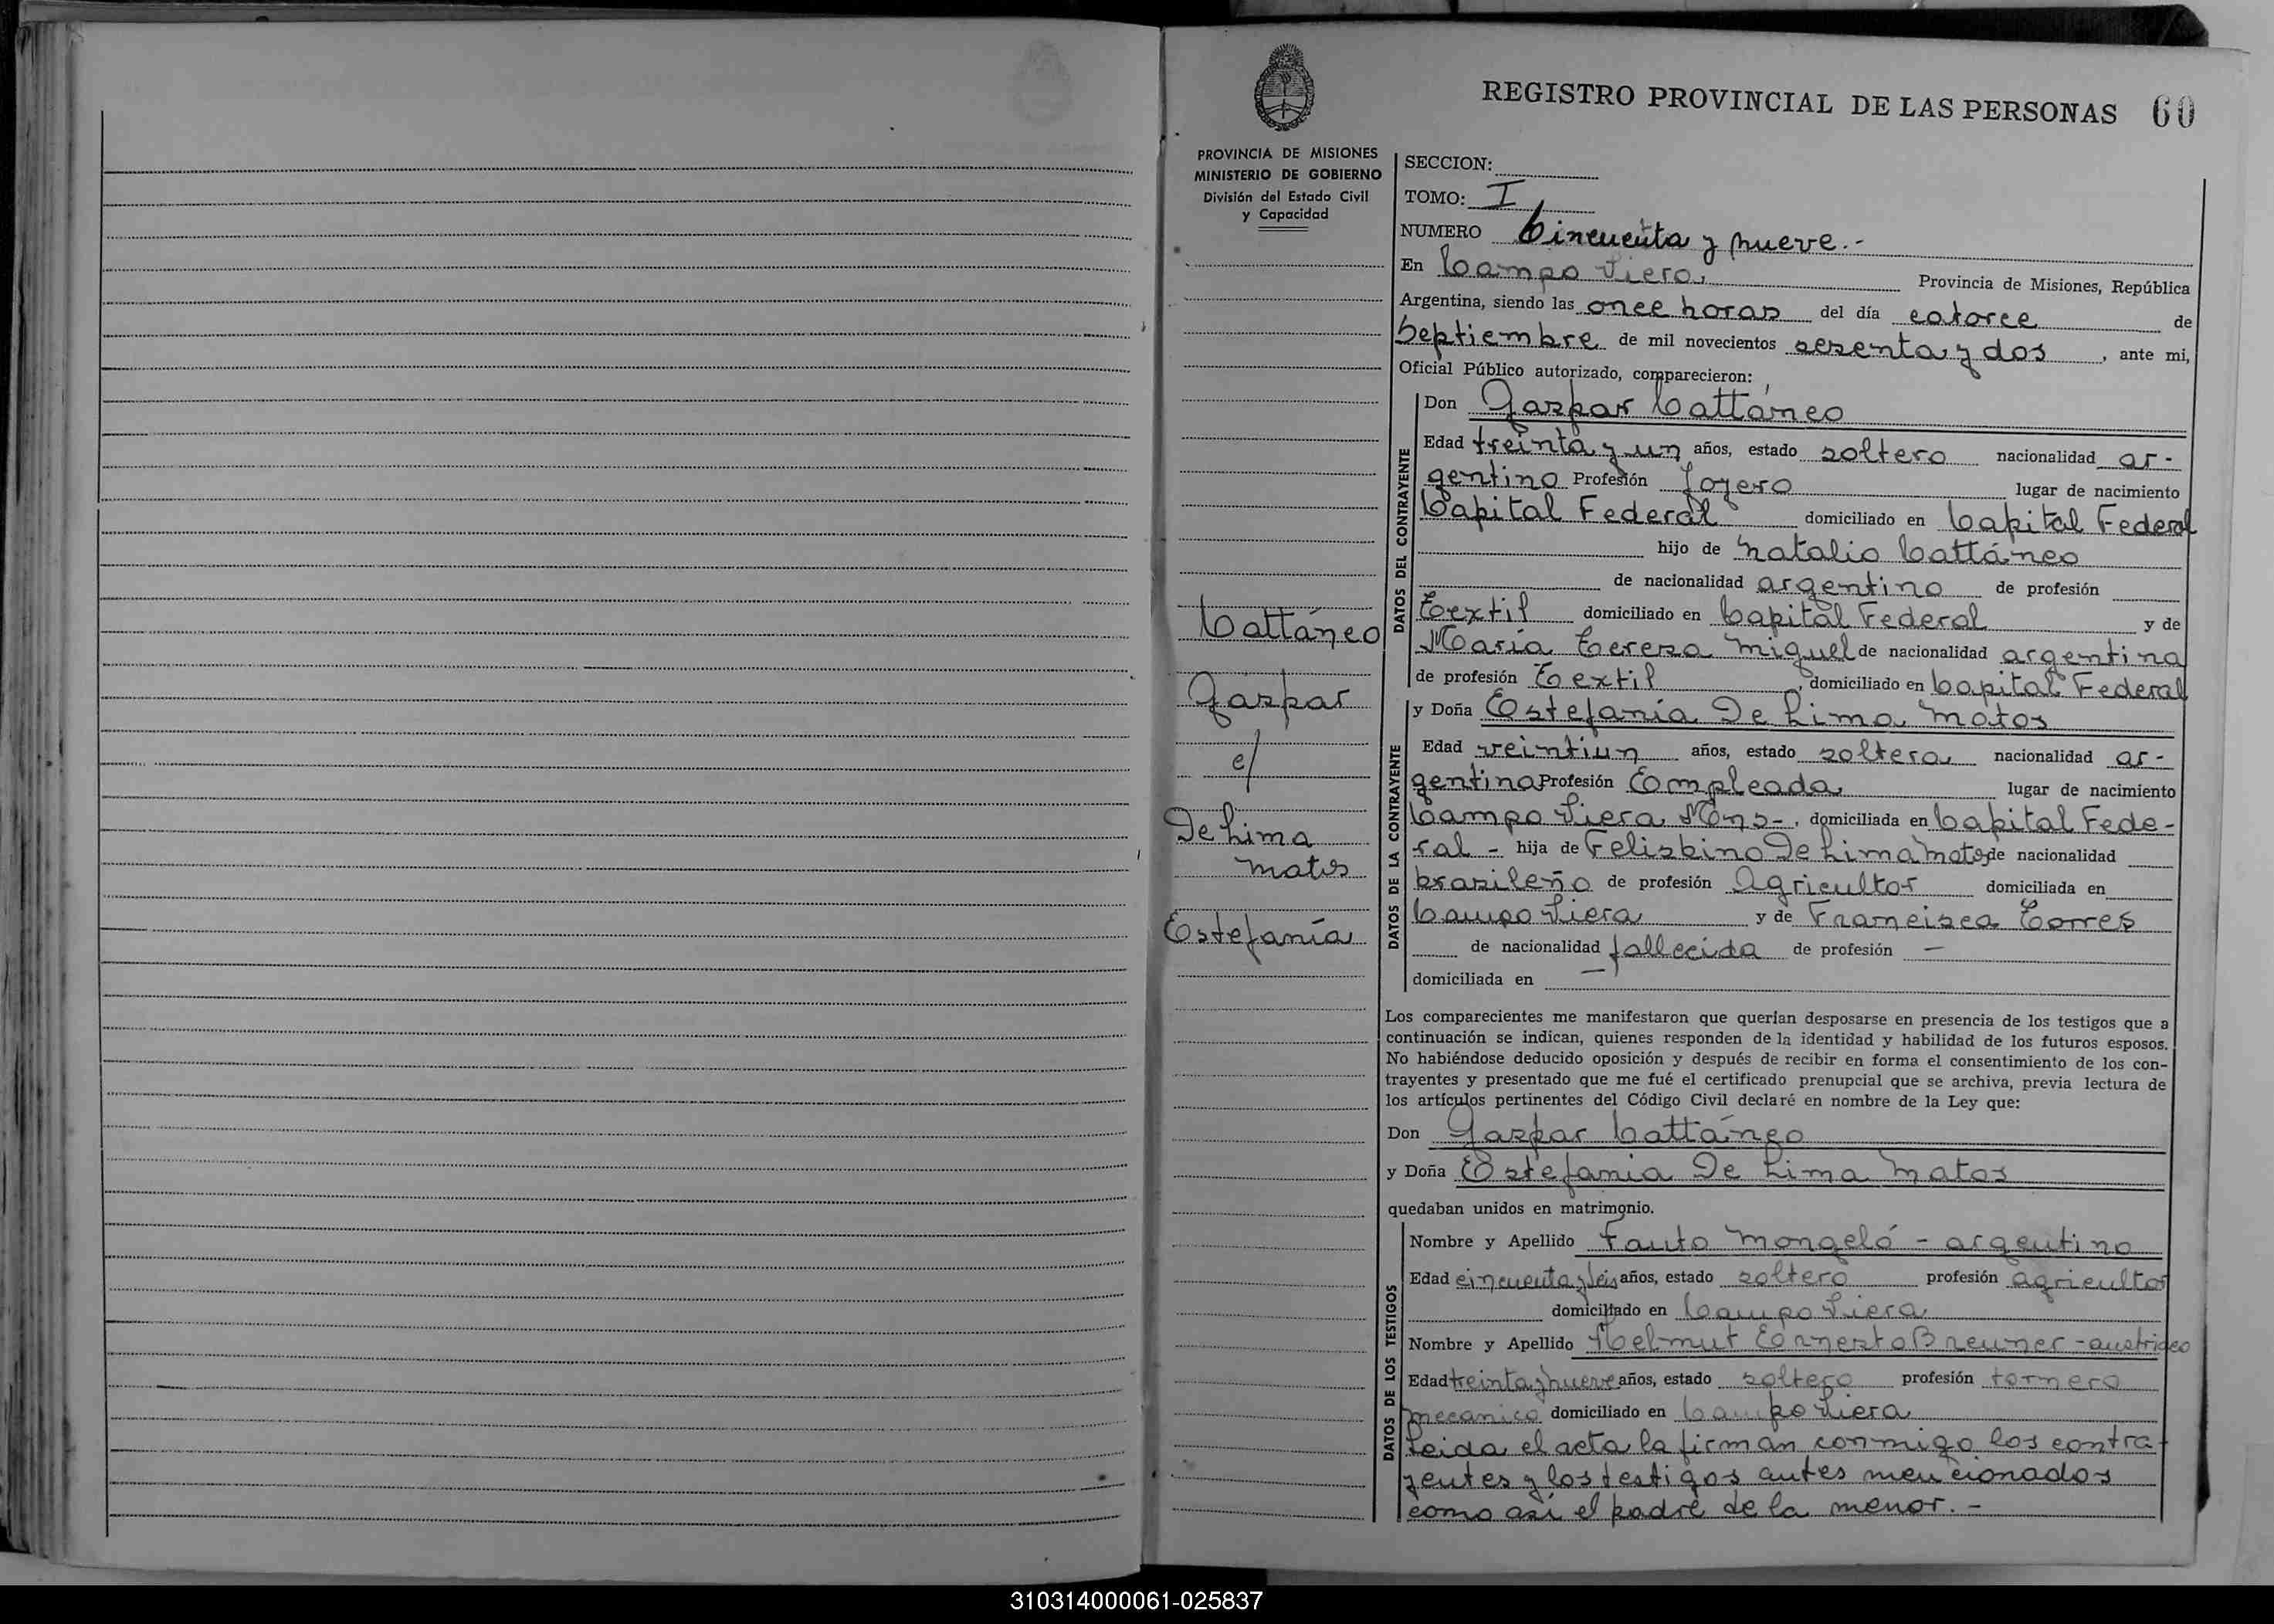 REGISTRO PROVINCIAL DE LAS PERSONAS 60
PROVINCIA DE MISIONES
MINISTERIO DE GOBIERNO
División del Estado Civil
y Capacidad
Cattáneo
Gaspar
c/
De Lima
Matos
Estefanía
SECCION:
TOMO: I
NUMERO Cincuenta y nueve.-
En Campo Viera, Provincia de Misiones, República
Argentina, siendo las once horas del día catorce de
Septiembre de mil novecientos sesenta y dos, ante mi,
Oficial Público autorizado, comparecieron:
DATOS DEL CONTRAYENTE
Don Gaspar Cattáneo
Edad treinta y un años, estado soltero nacionalidad ar-
gentino Profesión Joyero lugar de nacimiento
Capital Federal domiciliado en Capital Federal
hijo de Natalio Cattáneo
de nacionalidad argentino de profesión
Textil domiciliado en Capital Federal y de
María Teresa Miguel de nacionalidad argentina
de profesión Textil, domiciliado en Capital Federal
DATOS DE LA CONTRAYENTE
y Doña Estefanía De Lima Matos
Edad veintiun años, estado soltera nacionalidad ar-
gentina Profesión Empleada lugar de nacimiento
Campo Viera Mns-, domiciliada en Capital Fede-
ral - hija de Felisbino De Lima Matos de nacionalidad
brasileño de profesión Agricultor domiciliada en
Campo Viera y de Francisca Torres
de nacionalidad fallecida de profesión —
domiciliada en —
Los comparecientes me manifestaron que querían desposarse en presencia de los testigos que a
continuación se indican, quienes responden de la identidad y habilidad de los futuros esposos.
No habiéndose deducido oposición y después de recibir en forma el consentimiento de los con-
trayentes y presentado que me fué el certificado prenupcial que se archiva, previa lectura de
los artículos pertinentes del Código Civil declaré en nombre de la Ley que:
Don Gaspar Cattáneo
y Doña Estefania De Lima Matos
quedaban unidos en matrimonio.
DATOS DE LOS TESTIGOS
Nombre y Apellido Fauto Mongeló - argentino
Edad cincuenta y seis años, estado soltero profesión agricultor
domiciliado en Campo Viera
Nombre y Apellido Helmut Ernesto Breuner - austriaco
Edad treinta y nueve años, estado soltero profesión tornero
mecanico domiciliado en Campo Viera
Leida el acta la firman conmigo los contra-
yentes y los testigos antes mencionados
como asi el padre de la menor.-
310314000061-025837